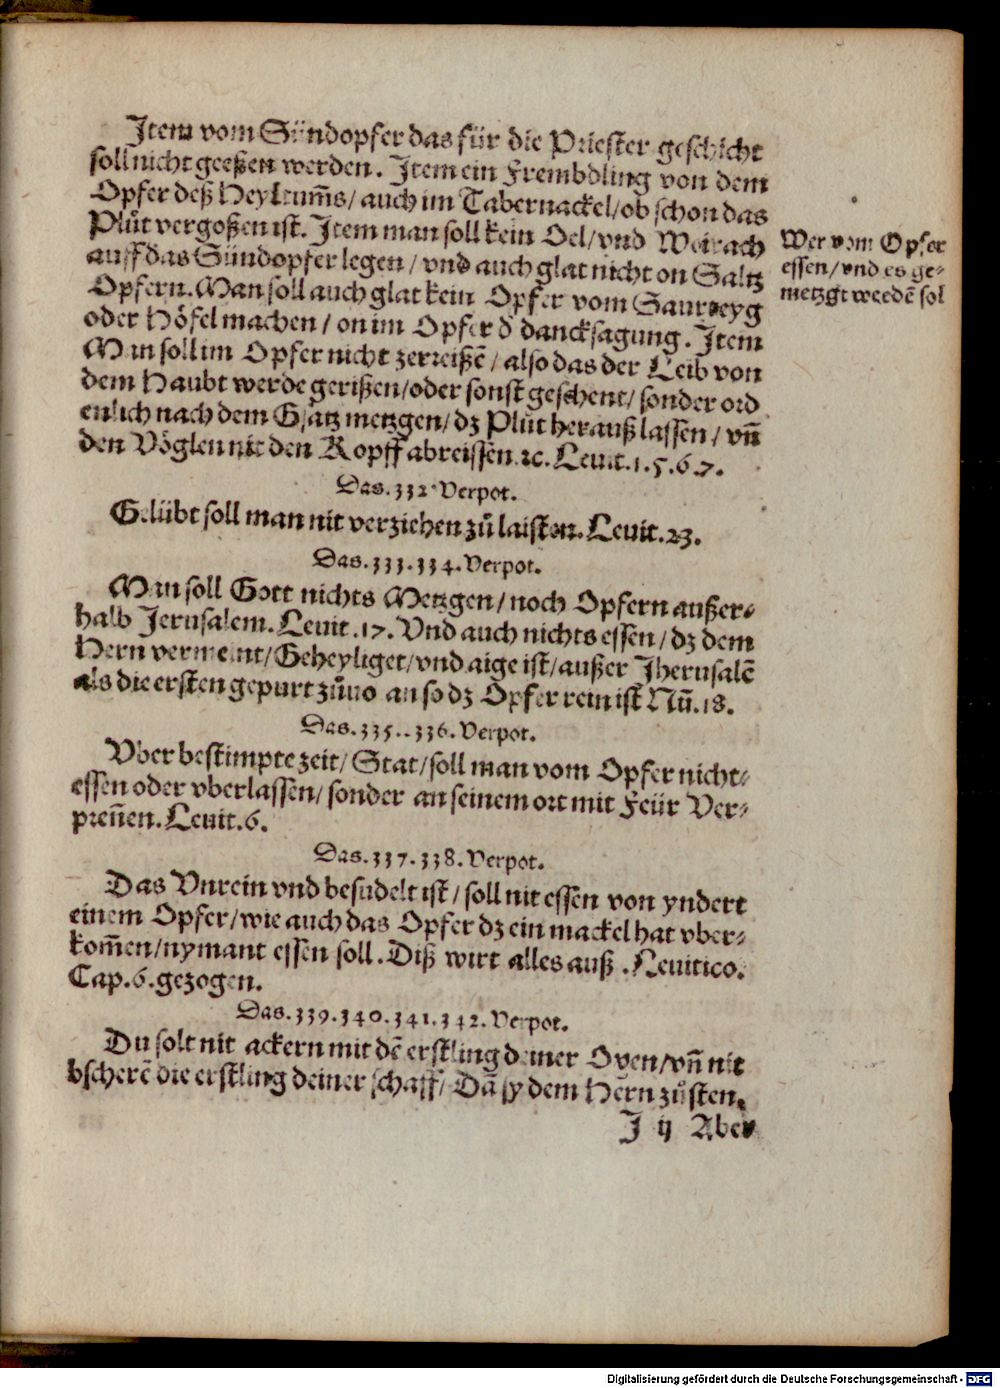 Item vom Sündopfer das für die Priester geschicht
soll nicht geeßen werden. Item ein Frembdling von dem
Opfer deß Heyltum̃s/ auch im Tabernackel/ ob schon das
Plůt vergoßen ist. Item man soll kein Oel/ vnd Weirach
auff das Sündopfer legen/ vnd auch glat nicht on Saltz
Opfern. Man soll auch glat kein Opfer vom Saurteyg
oder Höfel machen/ on im Opfer d' dancksagung. Item
Man soll im Opfer nicht zerreißẽ/ also das der Leib von
dem Haubt werde gerißen/ oder sonst geschent/ sonder ord
enlich nach dem Gsatz metzgen/ dz Plůt herauß lassen/ vñ
den Vöglen nit den Kopff abreissen. ꝛc. Leuit. 1. 5. 6. 7.
Wer vom Opfer
essen/ vnd es ge-
metzgt werdẽ sol
Das. 332. Verpot.
Gelübt soll man nit verziehen zů laisten. Leuit. 23.
Das. 333. 334. Verpot.
Man soll Gott nichts Metzgen/ noch Opfern außer-
halb Jerusalem. Leuit. 17. Vnd auch nichts essen/ dz dem
Hern vermeint/ Geheyliget/ vnd aige ist/ außer Jherusalẽ
als die ersten gepurt zůuo an so dz Opfer rein ist Nũ. 18.
Das. 335.. 336. Verpot.
Vber bestimpte zeit/ Stat/ soll man vom Opfer nicht-
essen oder vberlassen/ sonder an seinem ort mit Feür Ver-
preñen. Leuit. 6.
Das. 337. 338. Verpot.
Das Vnrein vnd besudelt ist/ soll nit essen von yndert
einem Opfer/ wie auch das Opfer dz ein mackel hat vber-
kom̃en/ nymant essen soll. Diß wirt alles auß . Leuitico.
Cap. 6. gezogen.
Das. 339. 340. 341. 342. Verpot.
Du solt nit ackern mit dẽ erstling deiner Oxen/ vñ nit
bscherẽ die erstling deiner schaff/ Dã sy dem Hern zů sten.
J ij Aber
Digitalisierung gefördert durch die Deutsche Forschungsgemeinschaft - DFG